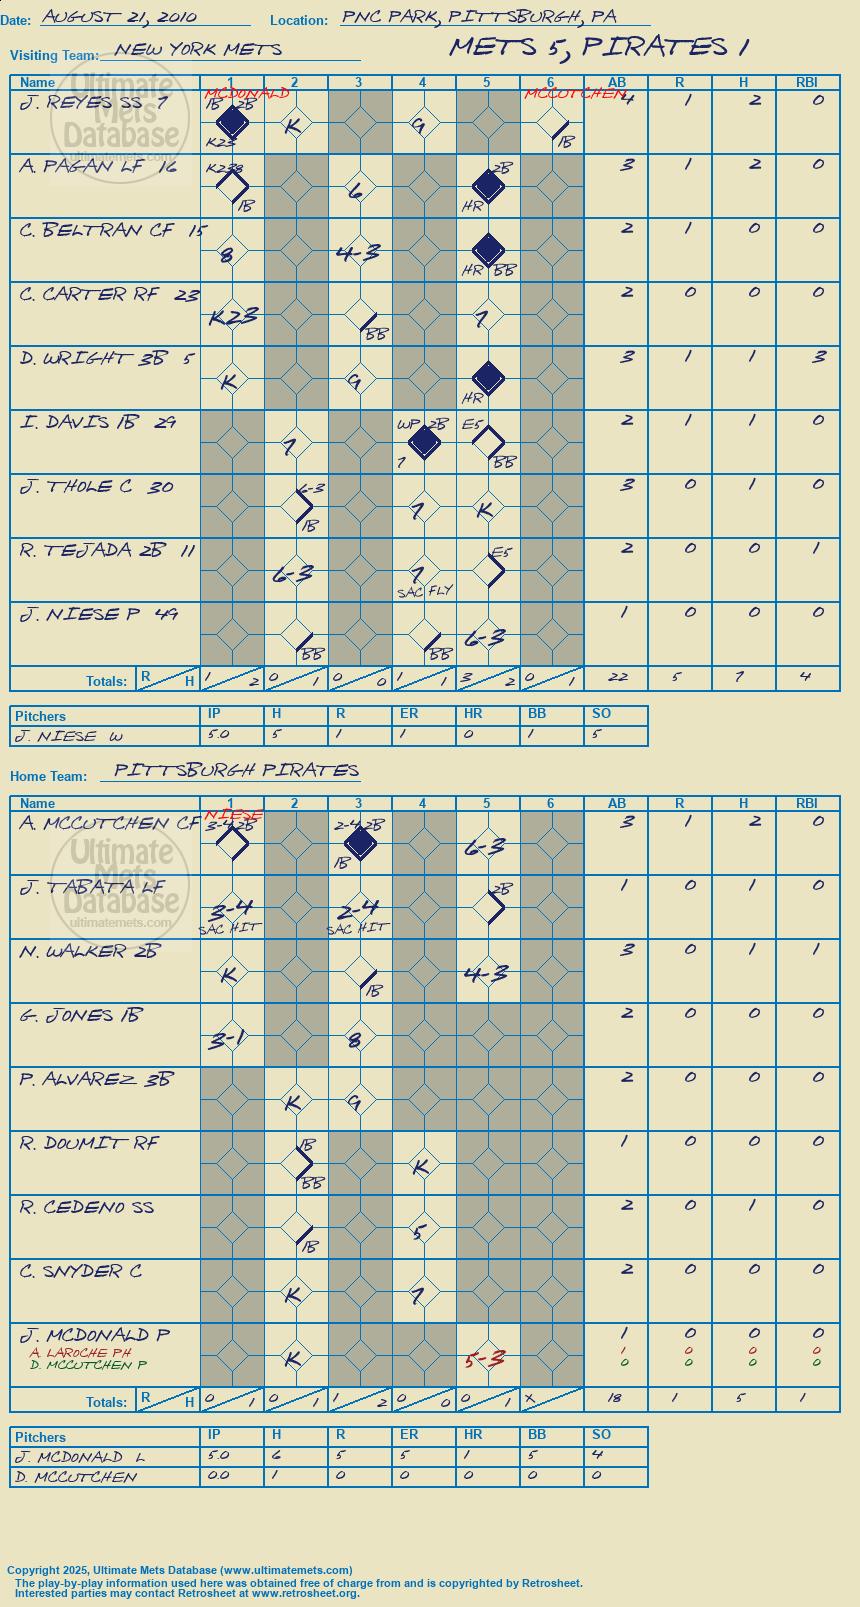 Date: AUGUST 21, 2010 Location: PNC PARK, PITTSBURGH, PA
Visiting Team: NEW YORK METS METS 5, PIRATES 1
Name 1 2 3 4 5 6 AB R H RBI
MCDONALD MCCUTCHEN
J. REYES SS 7 1B 2B K23 K 9 1B 4 1 2 0
A. PAGAN LF 16 K23 8 1B 6 2B HR 3 1 2 0
C. BELTRAN CF 15 8 4-3 HR BB 2 1 0 0
C. CARTER RF 23 K23 BB 7 2 0 0 0
D. WRIGHT 3B 5 K 9 HR 3 1 1 3
I. DAVIS 1B 29 7 WP 2B 7 E5 BB 2 1 1 0
J. THOLE C 30 6-3 1B 7 K 3 0 1 0
R. TEJADA 2B 11 6-3 7 SAC FLY E5 2 0 0 1
J. NIESE P 49 BB BB 6-3 1 0 0 0
Totals: R H 1 2 0 1 0 0 1 1 3 2 0 1 22 5 7 4
Pitchers IP H R ER HR BB SO
J. NIESE W 5.0 5 1 1 0 1 5
Home Team: PITTSBURGH PIRATES
Name 1 2 3 4 5 6 AB R H RBI
NIESE
A. MCCUTCHEN CF 3-4 2B 2-4 2B 1B 6-3 3 1 2 0
J. TABATA LF 3-4 SAC HIT 2-4 SAC HIT 2B 1 0 1 0
N. WALKER 2B K 1B 4-3 3 0 1 1
G. JONES 1B 3-1 8 2 0 0 0
P. ALVAREZ 3B K 9 2 0 0 0
R. DOUMIT RF 1B BB K 1 0 0 0
R. CEDENO SS 1B 5 2 0 1 0
C. SNYDER C K 7 2 0 0 0
J. MCDONALD P K 5-3 1 0 0 0
A. LAROCHE PH 1 0 0 0
D. MCCUTCHEN P 0 0 0 0
Totals: R H 0 1 0 1 1 2 0 0 0 1 X 18 1 5 1
Pitchers IP H R ER HR BB SO
J. MCDONALD L 5.0 6 5 5 1 5 4
D. MCCUTCHEN 0.0 1 0 0 0 0 0
Ultimate
Mets
Database
ultimatemets.com
Ultimate
Mets
Database
ultimatemets.com
Copyright 2025, Ultimate Mets Database (www.ultimatemets.com)
The play-by-play information used here was obtained free of charge from and is copyrighted by Retrosheet.
Interested parties may contact Retrosheet at www.retrosheet.org.